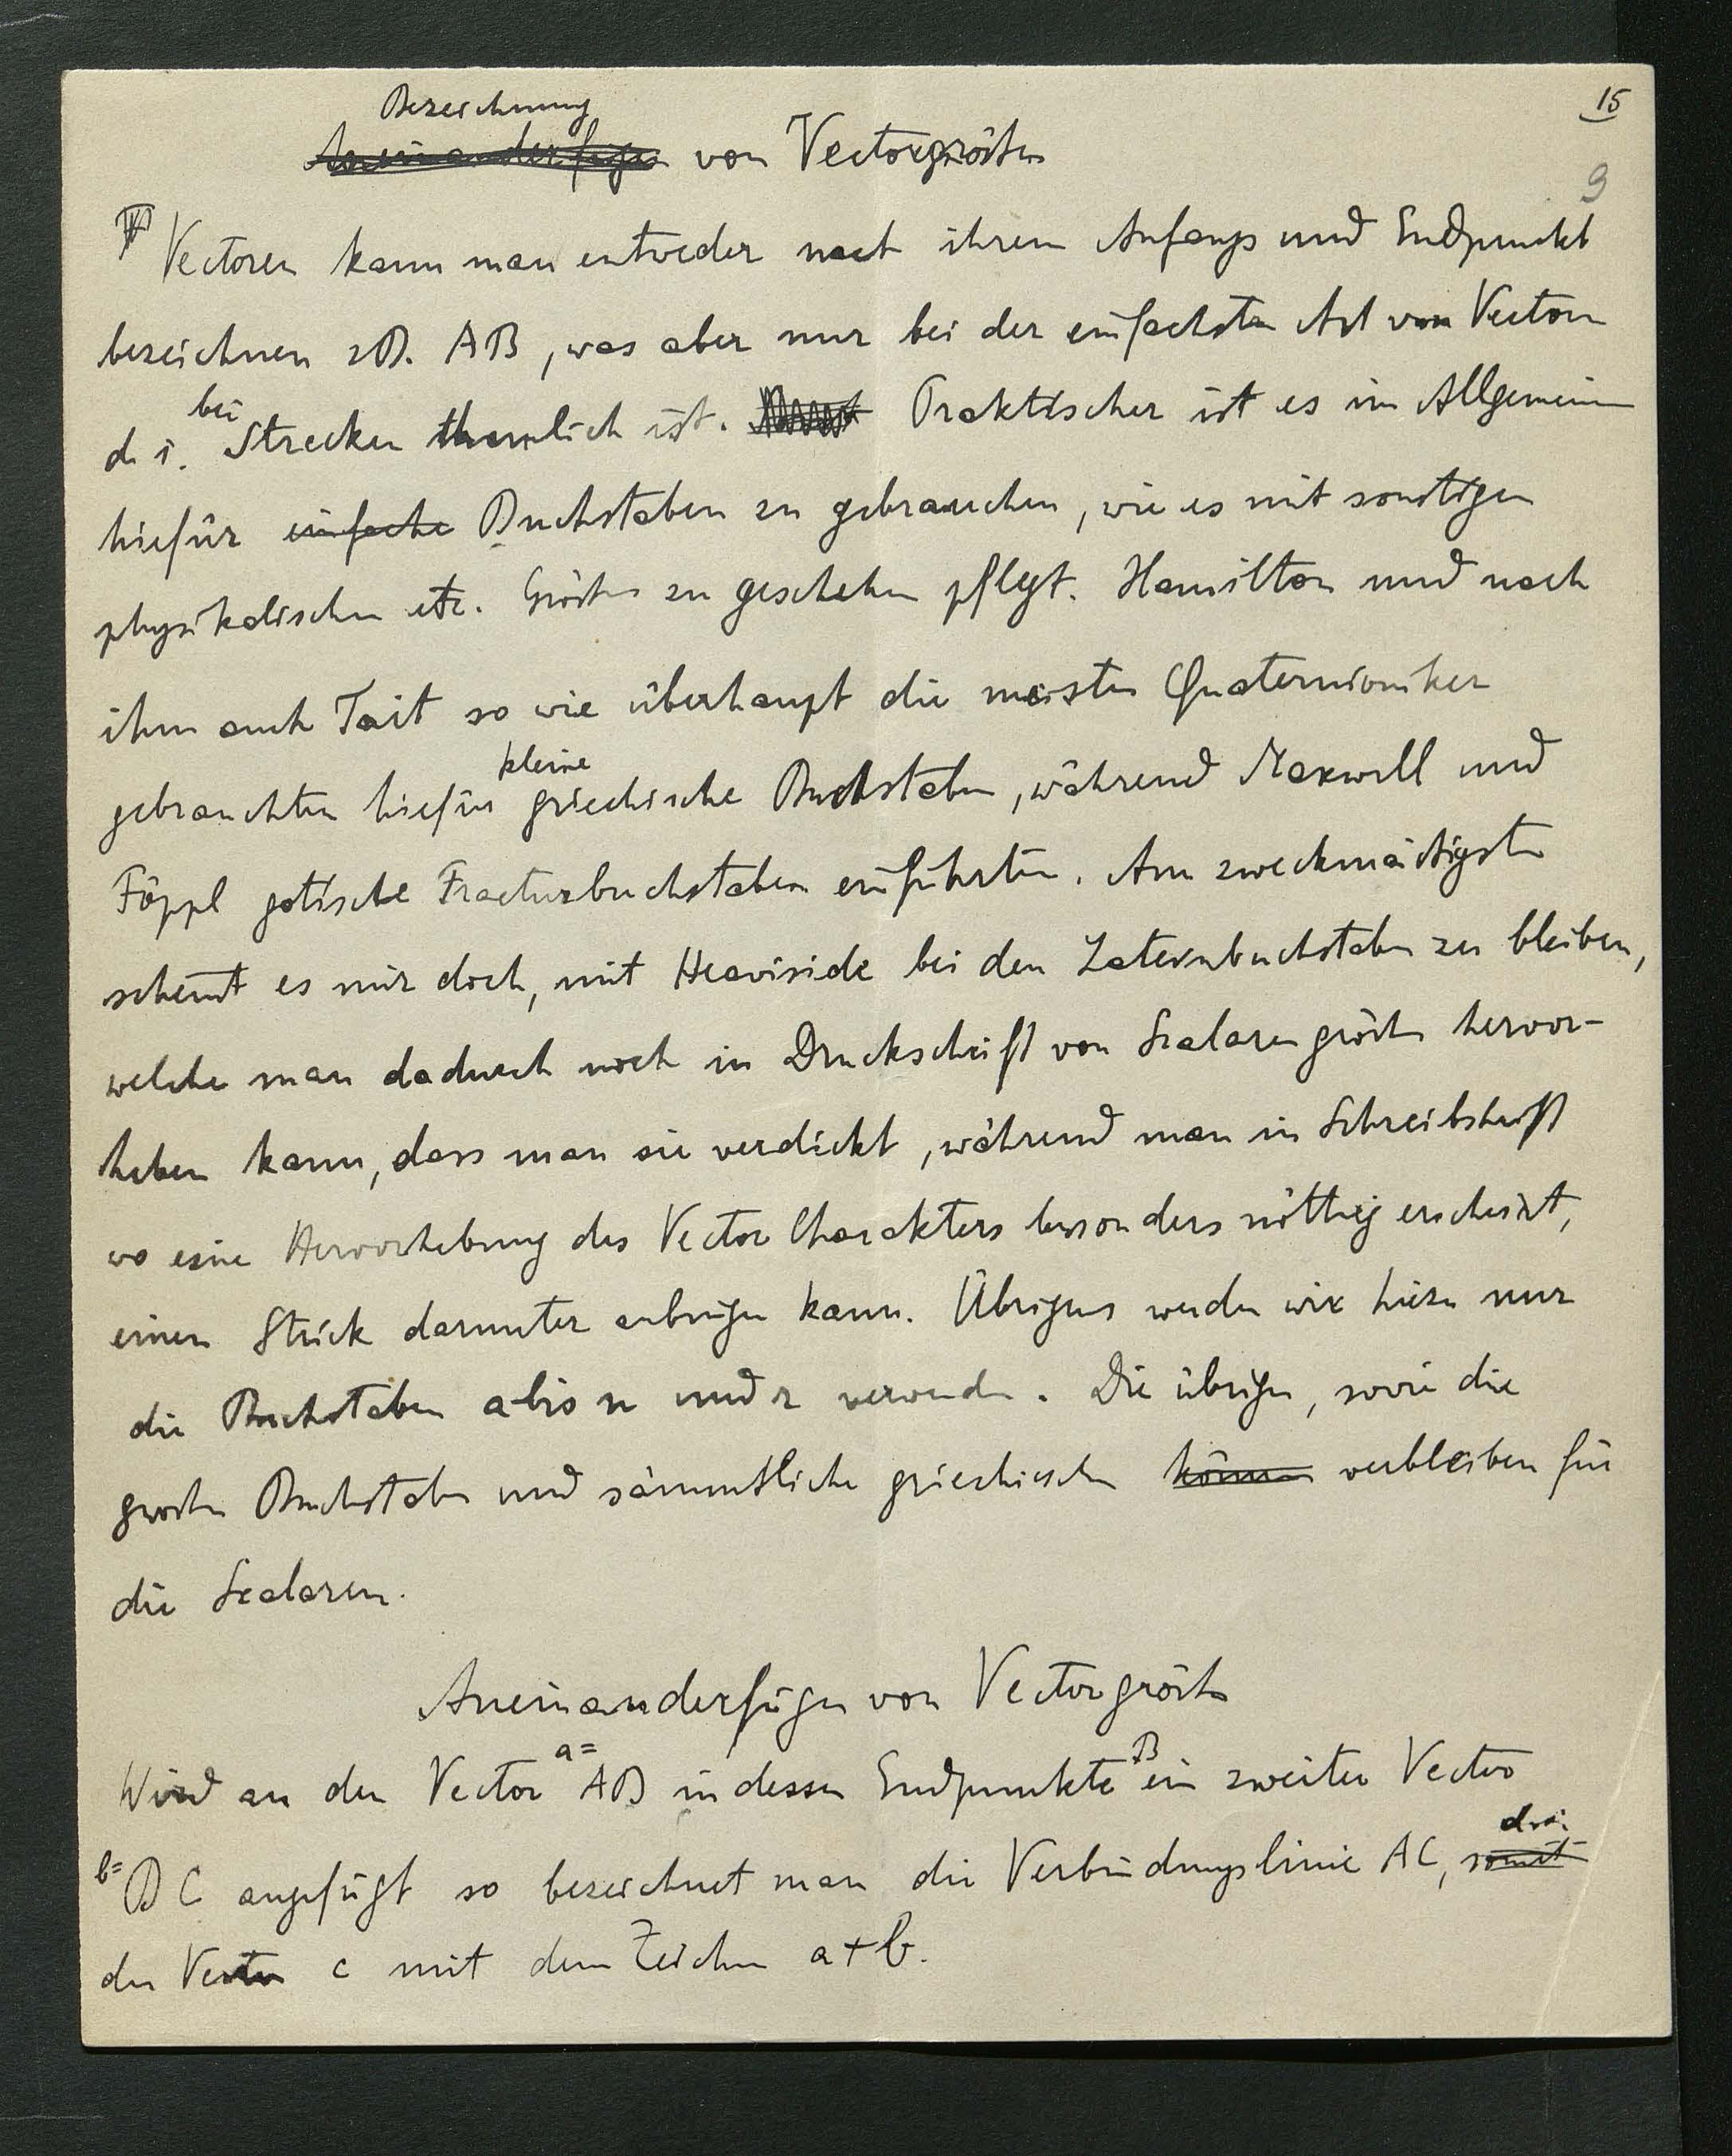 15
Bezeichnung
Aneinanderfügen von Vectorgrößen
9
Vectoren kann man entweder nach ihrem Anfangs und Endpunkt
bezeichnen zB. AB, was aber nur bei der einfachsten Art von Vectoren
bei
d. i. Strecken thunlich ist. Praktischer ist es im Allgemeinen
hiefür einfache Buchstaben zu gebrauchen, wie es mit sonstigen
physikalischen etc. Größen zu geschehen pflegt. Hamilton und nach
ihm auch Tait so wie überhaupt die meisten Quaternioniker
kleine
gebrauchten hiefür griechische Buchstaben, während Maxwell und
Föppl gotische Fracturbuchstaben einführten. Am zweckmäßigsten
scheint es mir doch, mit Heaviside bei den Lateinbuchstaben zu bleiben,
welche man dadurch noch in Druckschrift von Scalarengrößen hervor-
heben kann, dass man sie verdickt, während man in Schreibschrift
wo eine Hervorhebung des Vector Charakters besonders nöthig erscheint,
einen Strich darunter anbringen kann. Übrigens werden wir hiezu nur
die Buchstaben a bis n und r verwenden. Die übrigen, sowie die
großen Buchstaben und sämmtliche griechischen können verbleiben für
die Scalaren.
Aneinanderfügen von Vectorgrößen
a= B
Wird an den Vector AB in dessen Endpunkte ein zweiter Vector
d. i.
b= BC angefügt so bezeichnet man die Verbindungslinie AC, somit
den Vector c mit dem Zeichen a+b.